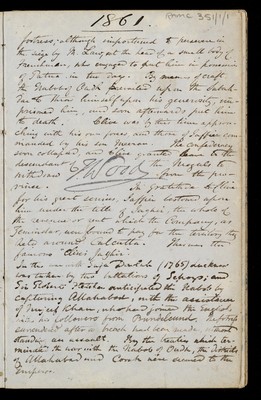 1861.
fortress, although importuned to persevere in
the siege by M. Law, at the head of a small body of
Frenchmen, who engaged to put him in possession
of Patna in two days. By means of craft
the Nabob of Oudh prevailed upon the Subah-
to throw himself upon his generosity, im-
prisoned him and soon afterwards put him
to death. Clive was by this time approa-
ching with his own forces and those of Jaffier com-
manded by his son Meeran. The confederacy
soon
descendant of the Moguls to
withdraw from the pro-
vince. In gratitude to Clive
for his great services, Jaffier bestowed upon
him under the title of Jaghir, the whole of
the revenue or rent which the Company, as
Zemindar, were bound to pay for the territory they
held around Calcutta. Thence the
famous Clive Jaghir.
In the war with Suja Dowlah (1765) Lucknow
was taken by two battalions of Sepoys; and
Sir Robert Fletcher anticipated the Nabob by
capturing Allahabad, with the assistance
of Nujeef Khan, who had joined the English
with his followers from Bundelcund. The fort
surrendered after a breach had been made, without
standing an assault. By the treaties which ter-
minated the war with the Nabob of Oudh, the districts
of Allahabad and Corah were ceded to the
Emperor.
Wood